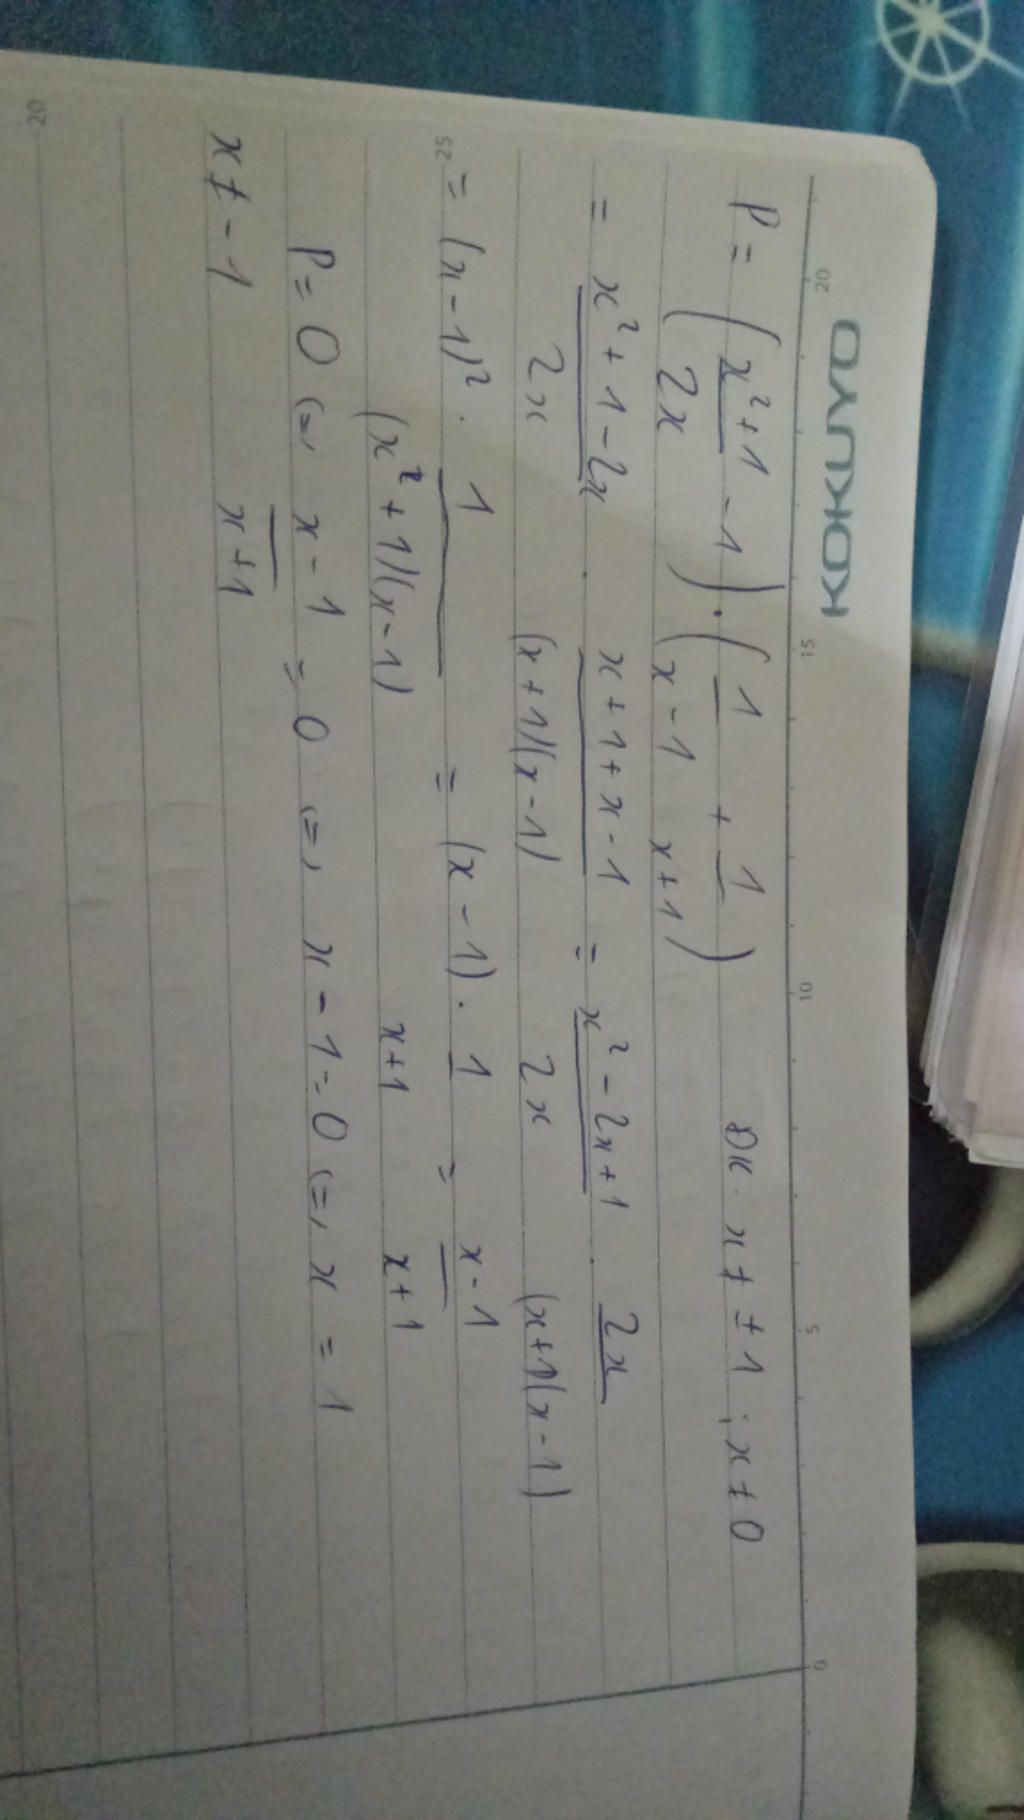 KOKUYO
20 15 10 5 0
P = (x²+1/2x - 1) · (1/x-1 + 1/x+1) ĐK. x ≠ ±1 ; x ≠ 0
= x²+1-2x/2x · x+1+x-1/(x+1)(x-1) = x²-2x+1/2x · 2x/(x+1)(x-1)
25 = (x-1)² · 1/(x²+1)(x-1) = (x-1) · 1/x+1 = x-1/x+1
P = 0 (=, x-1/x+1 = 0 (=, x-1 = 0 (=, x = 1
x ≠ -1
20